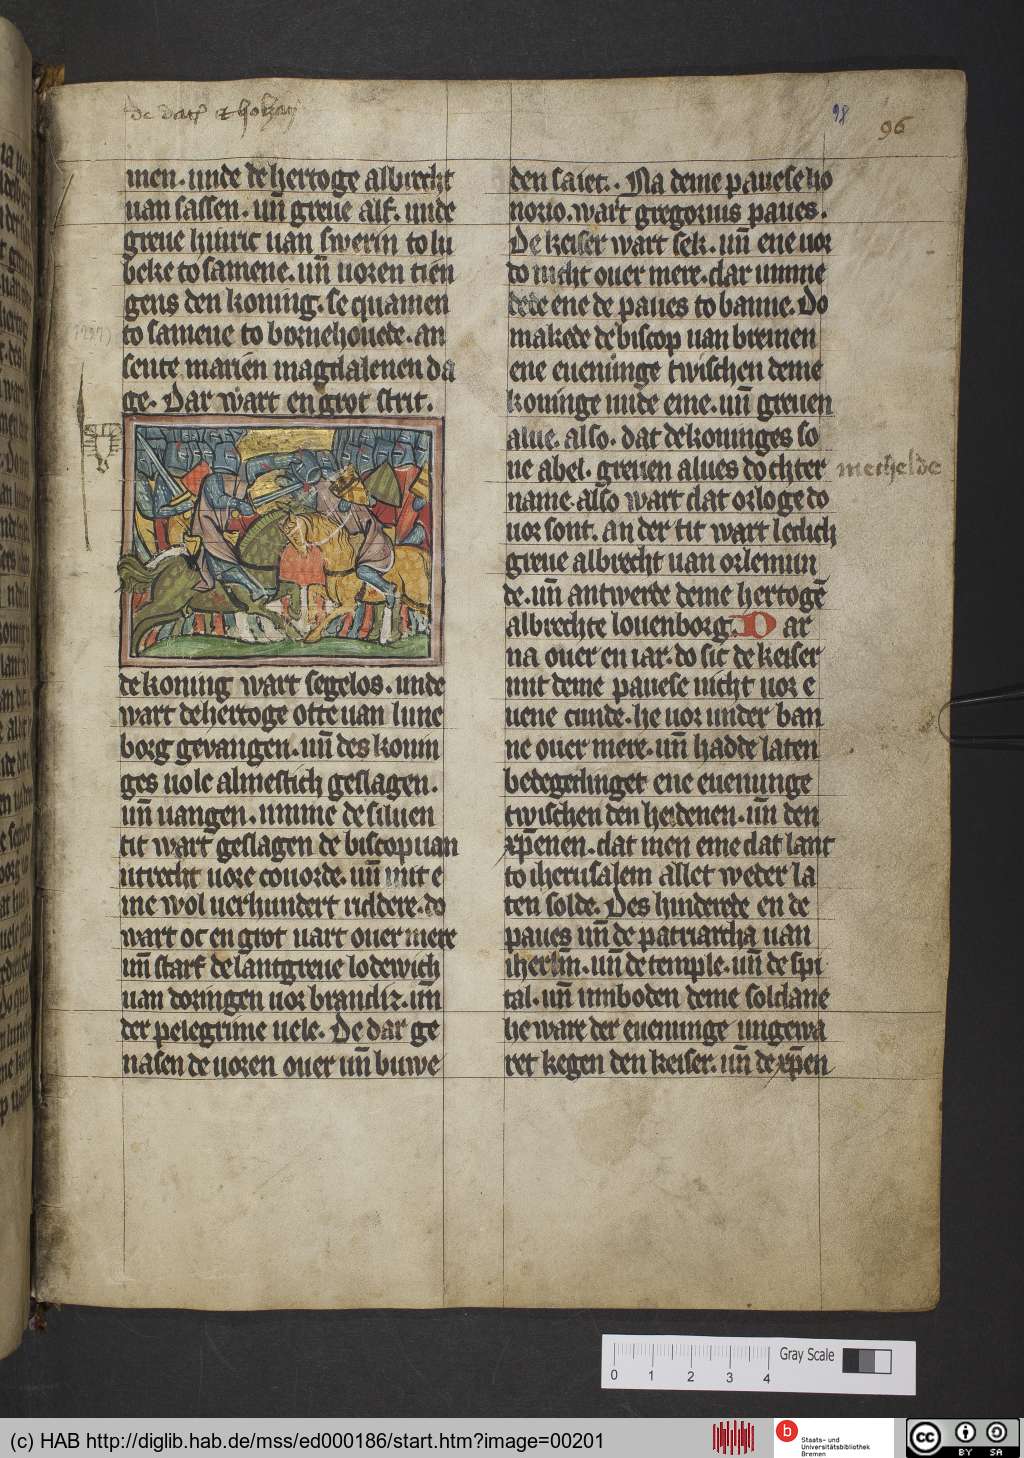 98
96
men. unde de hertoge albrecht
uan sassen. uñ greue alf. unde
greue hinric uan swerin to lu
beke to samene. uñ uoren tien
gens den koning. se quamen
to samene to bornehouede. an
sente marien magdalenen da
ge. Dar wart en grot strit.
de koning wart segelos. unde
wart de hertoge otte uan lune
borg geuangen. uñ des konin
ges uolc almestich geslagen.
uñ uangen. inme de siluen
tit wart geslagen de biscop uan
utrecht uore couorde. uñ mit e
me wol uerhundert riddere. do
wart oc en grot uart ouer mere
uñ starf de lantgreue lodewich
uan doringen uor brandiz. uñ
der pelegrime uele. De dar ge
nasen de uoren ouer uñ buwe
den saiet. Na deme pauese ho
norio. wart gregorius paues.
De keiser wart sek. uñ ene uor
do nicht ouer mere. dar umme
dede ene de paues to banne. Do
makede de biscop uan bremen
ene eueninge twischen deme
koninge unde eme. uñ greuen
alue. also. dat de koninges so
ne abel. greuen alues dochter
mechelde
name. also wart dat orloge do
uorsont. an der tit wart ledich
greue albrecht uan orlemun
de. uñ antwerde deme hertogē
albrechte louenborg. Dar
na ouer en iar. do sic de keiser
mit deme pauese nicht uor e
uene cunde. he uor under ban
ne ouer mere. uñ hadde laten
bedegedinget ene eueninge
twischen den heidenen. uñ den
xp̄enen. dat men eme dat lant
to iherusalem allet weder la
ten solde. Des hinderede en de
paues uñ de patriarcha uan
iherlm̄. uñ de temple. uñ de spi
tal. uñ unboden deme soldane
he ware der eueninge ungewa
ret kegen den keiser. uñ de xp̄en
0 1 2 3 4
Gray Scale
(c) HAB http://diglib.hab.de/mss/ed000186/start.htm?image=00201
b
Staats- und
Universitätsbibliothek
Bremen
cc
BY SA